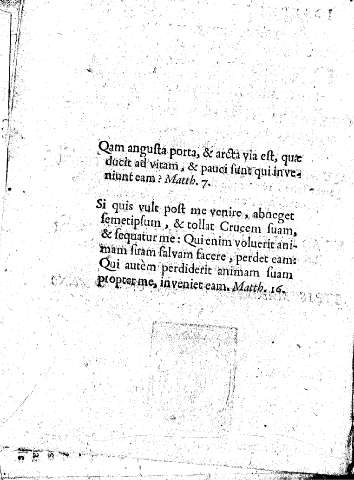 Qam angusta porta, & arcta via est, quæ
ducit ad vitam, & pauci sunt qui inve-
niunt eam? Matth. 7.
Si quis vult post me venire, abneget
semetipsum, & tollat Crucem suam,
& sequatur me: Qui enim voluerit ani-
mam suam salvam facere, perdet eam:
Qui autèm perdiderit animam suam
propter me, inveniet eam. Matth. 16.